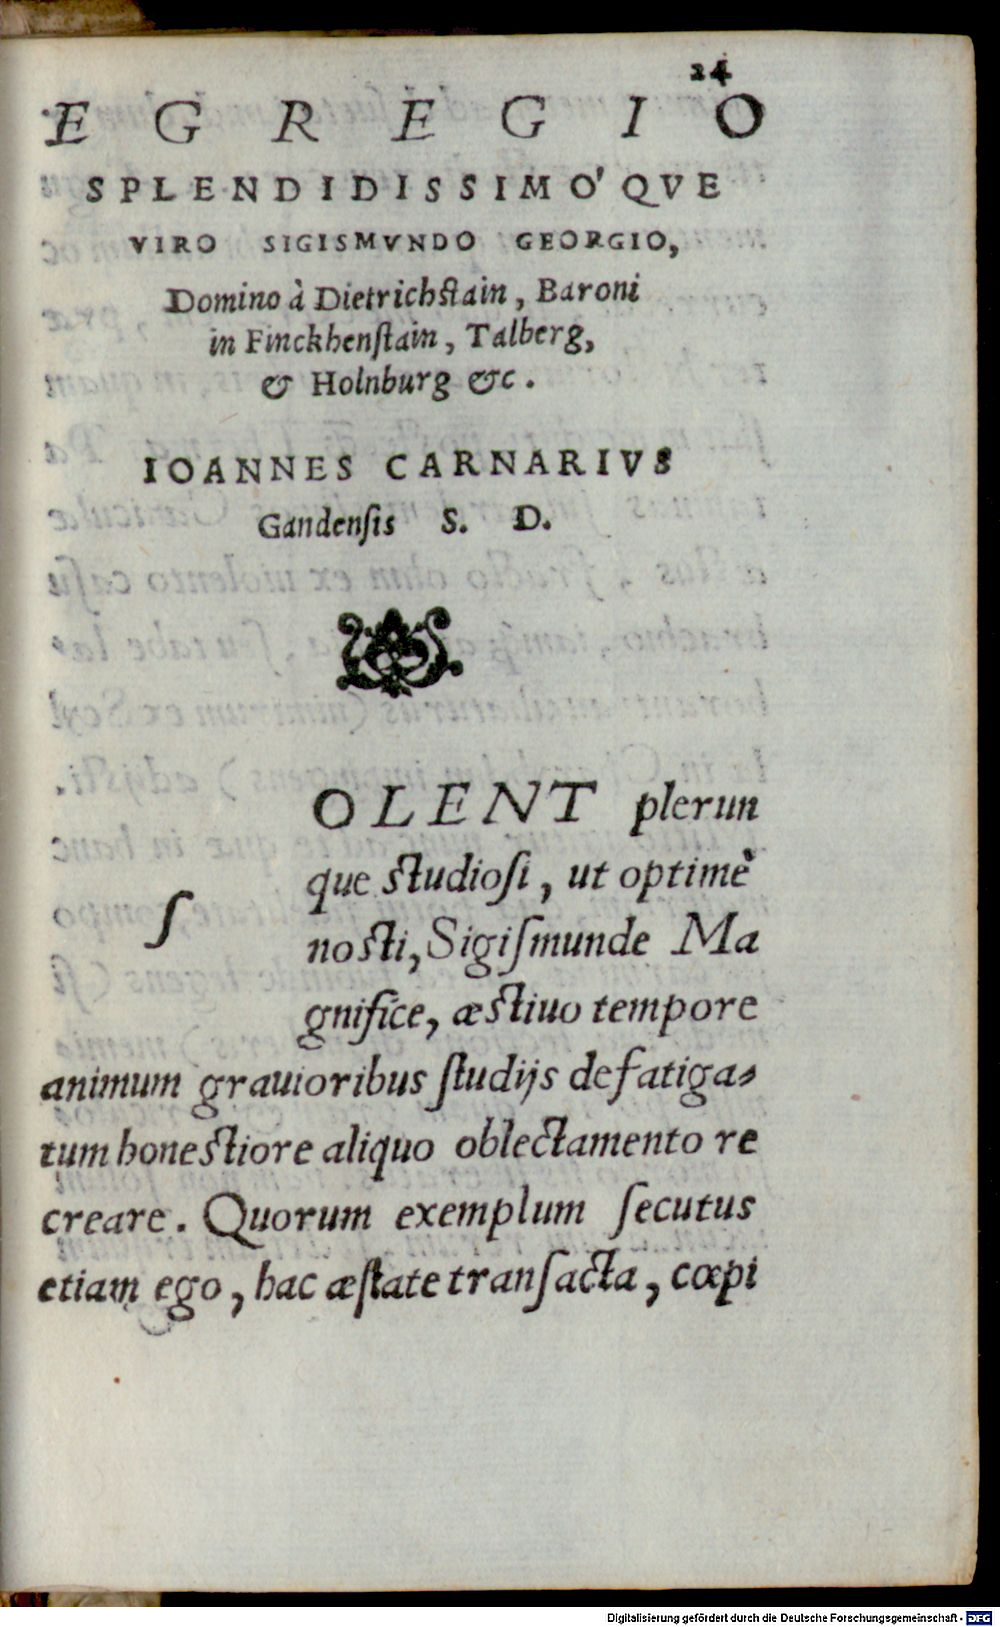 24
EGREGIO
SPLENDIDISSIMO'QVE
VIRO SIGISMVNDO GEORGIO,
Domino à Dietrichſtain, Baroni
in Finckhenſtain, Talberg,
& Holnburg &c.
IOANNES CARNARIVS
Gandenſis S. D.
SOLENT plerun
que ſtudioſi, ut optimè
noſti, Sigiſmunde Ma
gnifice, æſtiuo tempore
animum grauioribus ſtudijs defatiga-
tum honeſtiore aliquo oblectamento re
creare. Quorum exemplum ſecutus
etiam ego, hac æſtate tranſacta, cœpi
Digitalisierung gefördert durch die Deutsche Forschungsgemeinschaft - DFG